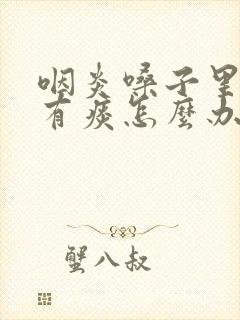 咽炎嗓子里
有痰怎麼办
蟹八叔